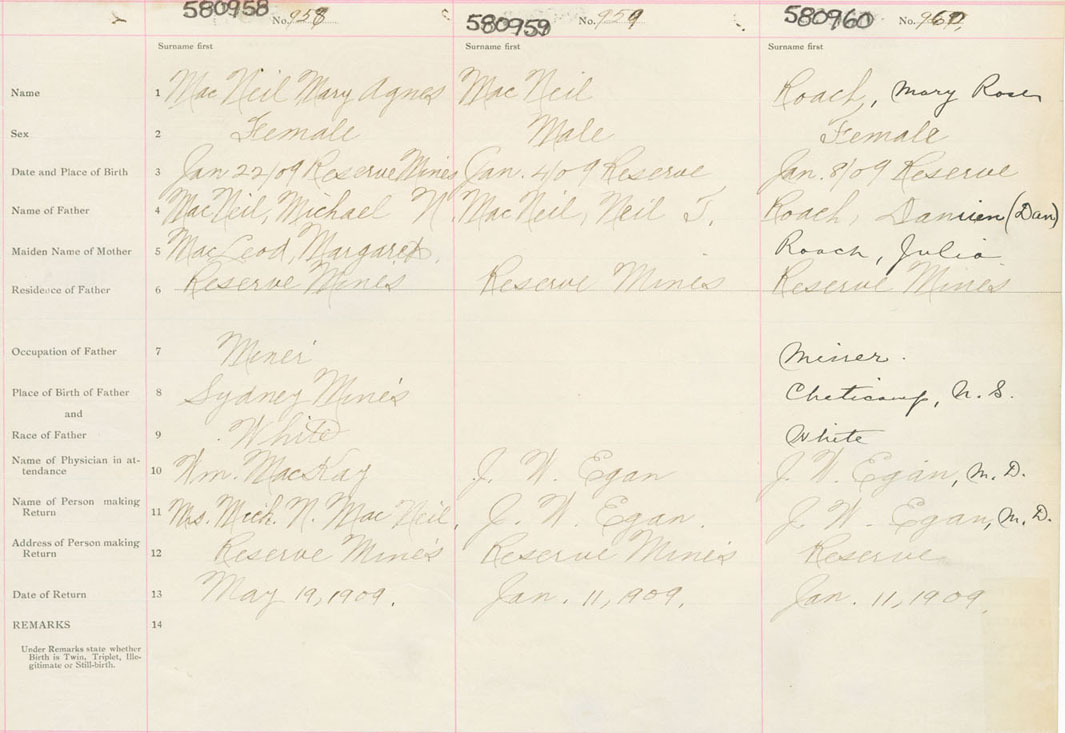 580958 No. 958 580959 No. 959 580960 No. 960
Surname first Surname first Surname first
Name 1 MacNeil Mary Agnes MacNeil Roach, Mary Rose
Sex 2 Female Male Female
Date and Place of Birth 3 Jan 22/09 Reserve Mines Jan. 4/09 Reserve Jan. 8/09 Reserve
Name of Father 4 MacNeil, Michael N. MacNeil, Neil J. Roach, Damien (Dan)
Maiden Name of Mother 5 MacLeod, Margaret. Roach, Julia
Residence of Father 6 Reserve Mines Reserve Mines Reserve Mines
Occupation of Father 7 Miner Miner.
Place of Birth of Father 8 Sydney Mines Cheticamp, N.S.
and
Race of Father 9 White White
Name of Physician in at-
tendance 10 Wm. MacKay J. W. Egan J. W. Egan, M.D.
Name of Person making
Return 11 Mrs. Mich. N. MacNeil. J. W Egan. J. W. Egan, M.D.
Address of Person making
Return 12 Reserve Mines Reserve Mines Reserve
Date of Return 13 May 19, 1909. Jan. 11, 1909. Jan. 11, 1909.
REMARKS 14
Under Remarks state whether
Birth is Twin, Triplet, Ille-
gitimate or Still-birth.